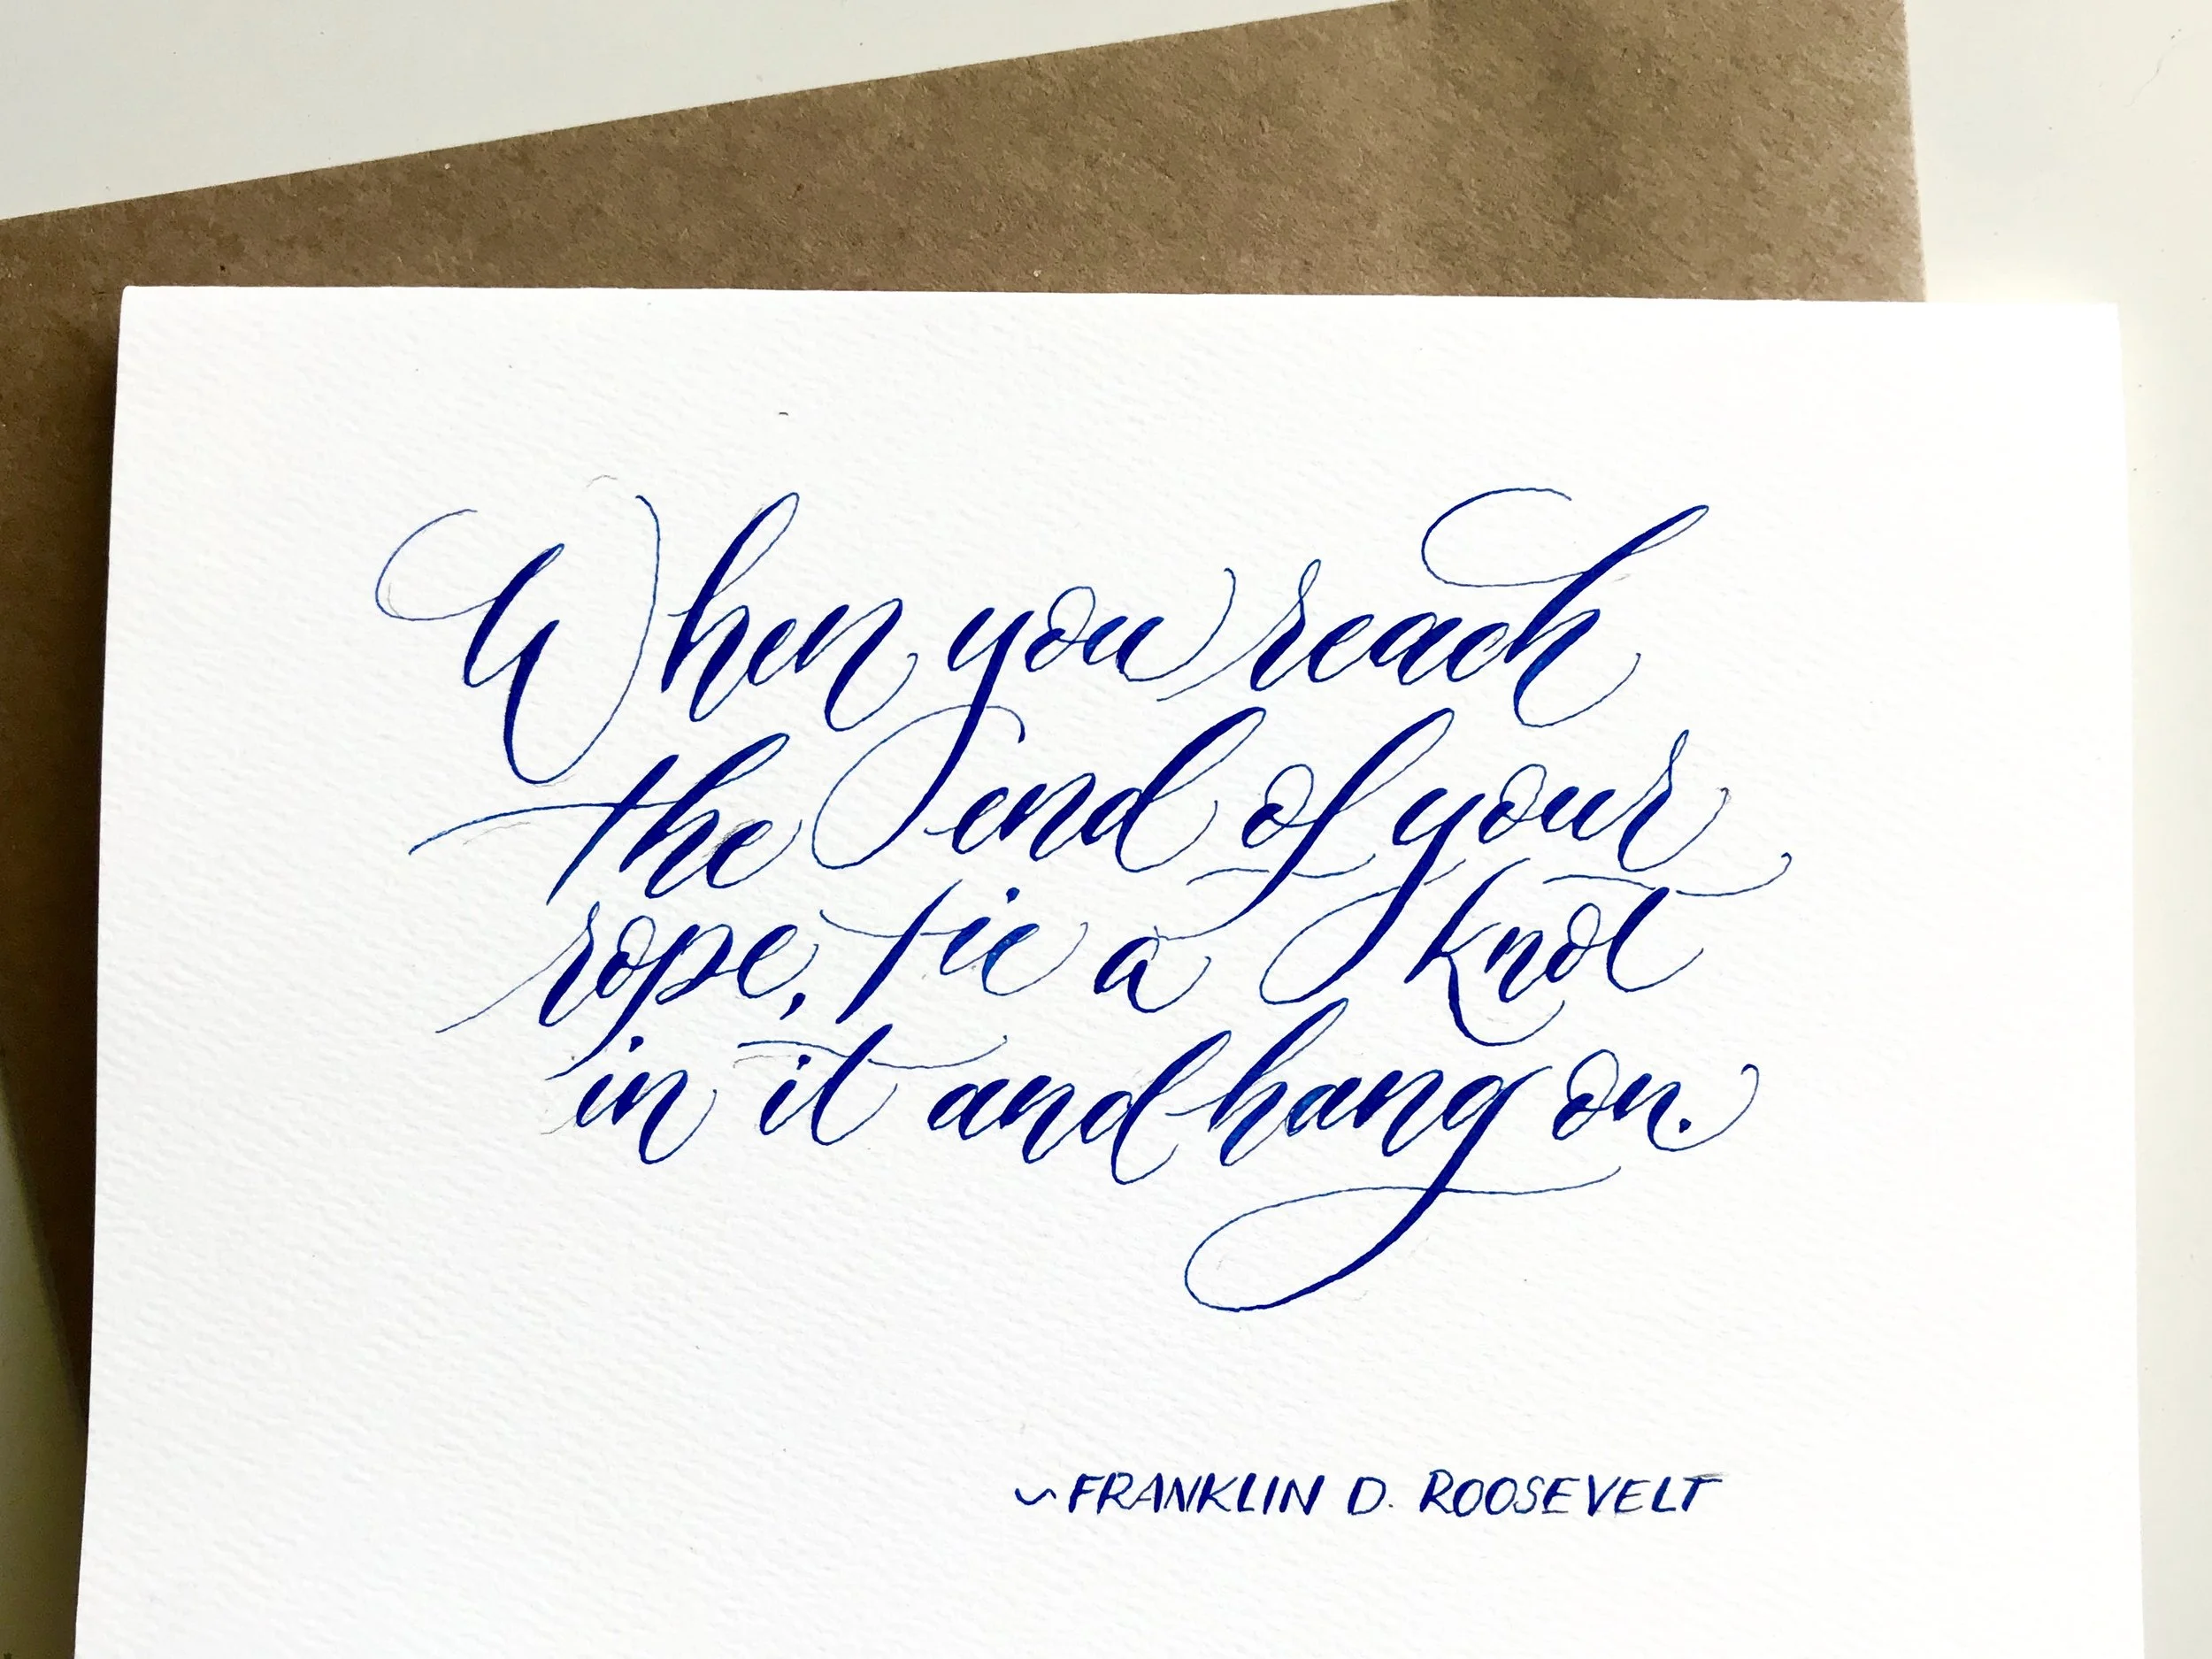 When you reach
the end of your
rope, tie a knot
in it and hang on.
~FRANKLIN D. ROOSEVELT